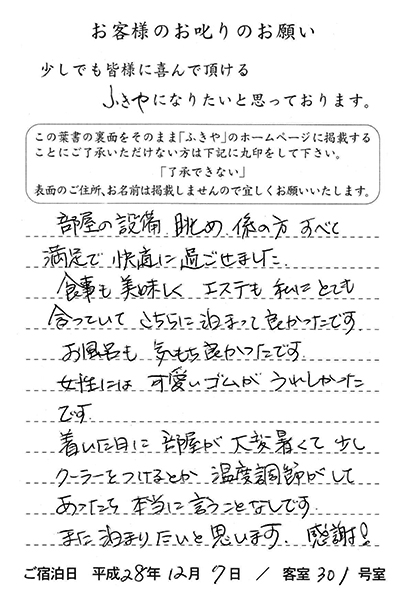 お客様のお叱りのお願い
少しでも皆様に喜んで頂ける
ふきやになりたいと思っております。
この葉書の裏面をそのまま「ふきや」のホームページに掲載する
ことにご了承いただけない方は下記に丸印をして下さい。
「了承できない」
表面のご住所、お名前は掲載しませんので宜しくお願いいたします。
部屋の設備 眺め 係の方 すべて
満足で 快適に 過ごせました.
食事も 美味しく エステも 私にとても
合っていて こちらに 泊まって 良かったです
お風呂も 気もち良かったです.
女性には 可愛いゴムが うれしかった
です.
着いた日に 部屋が 大変暑くて 少し
クーラーをつけるとか 温度調節がして
あったら 本当に言うことなしです.
また 泊まりたいと 思います. 感謝!
ご宿泊日 平成28年12月7日 / 客室301号室